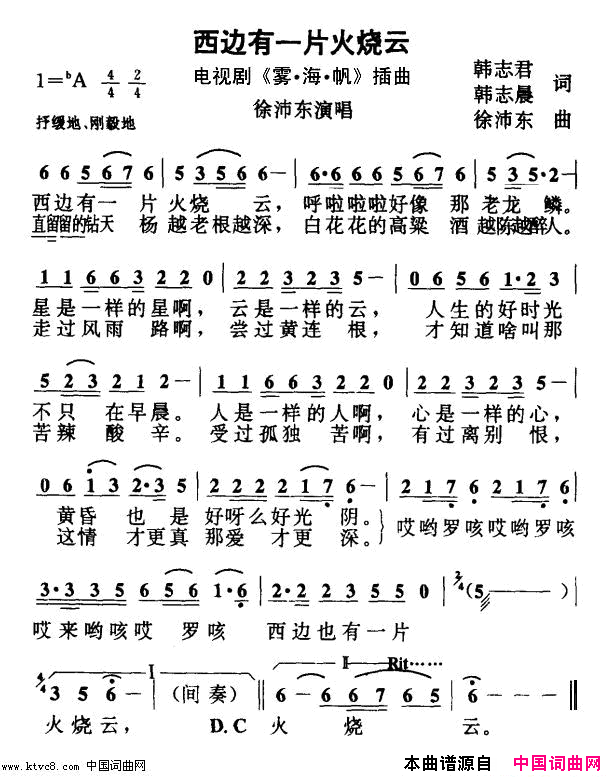 西边有一片火烧云
1=ᵇA 4/4 2/4
电视剧《雾·海·帆》插曲
韩志君
韩志晨 词
抒缓地、刚毅地
徐沛东演唱
徐沛东 曲
6 6 5 6 7 6 | 5 3 5 6 6 - | 6·6 6 6 5 6 7 6 | 5 3 5· 2 - |
西边有一 片火烧 云， 呼啦啦啦好像 那 老龙 鳞。
直留留的钻天 杨 越老根越深， 白花花的高粱 酒 越陈越醉人。
1 1 6 6 3 2 2 0 | 2 2 3 2 2 3 5 - | 0 5 2 5 6 1·2 3 |
星是一样的星啊， 云是一样的云， 人生的好时光
走过风雨 路啊， 尝过黄连 根， 才知道啥叫那
5 2 3 2 1 2 - | 1 1 6 6 3 2 2 0 | 2 2 3 2 2 3 5 - |
不只 在早晨。 人是一样的人啊， 心是一样的心，
苦辣 酸 辛。 受过孤独 苦啊， 有过离别 恨，
0 6 1 3 2·3 5 | 2 2 2 3 2 1 7 6 | 2 1 7 6 2 1 7 6 |
黄昏 也 是 好呀么好光 阴。 哎哟罗咳哎哟罗咳
这情 才更真 那爱 才更 深。
3·3 3 5 6 5 6 1·6 | 2·2 2 3 5 5 0 | 2/4 (5 - ) |
哎来哟咳哎 罗咳 西边也有一片
I II Rit……
4/4 3 5 6 - | (间奏) | 6 - 6 6 7 6 5 | 6 - - - ‖
火烧云， D.C 火 烧 云。
www.ktvc8.com 中国词曲网
本曲谱源自 中国词曲网